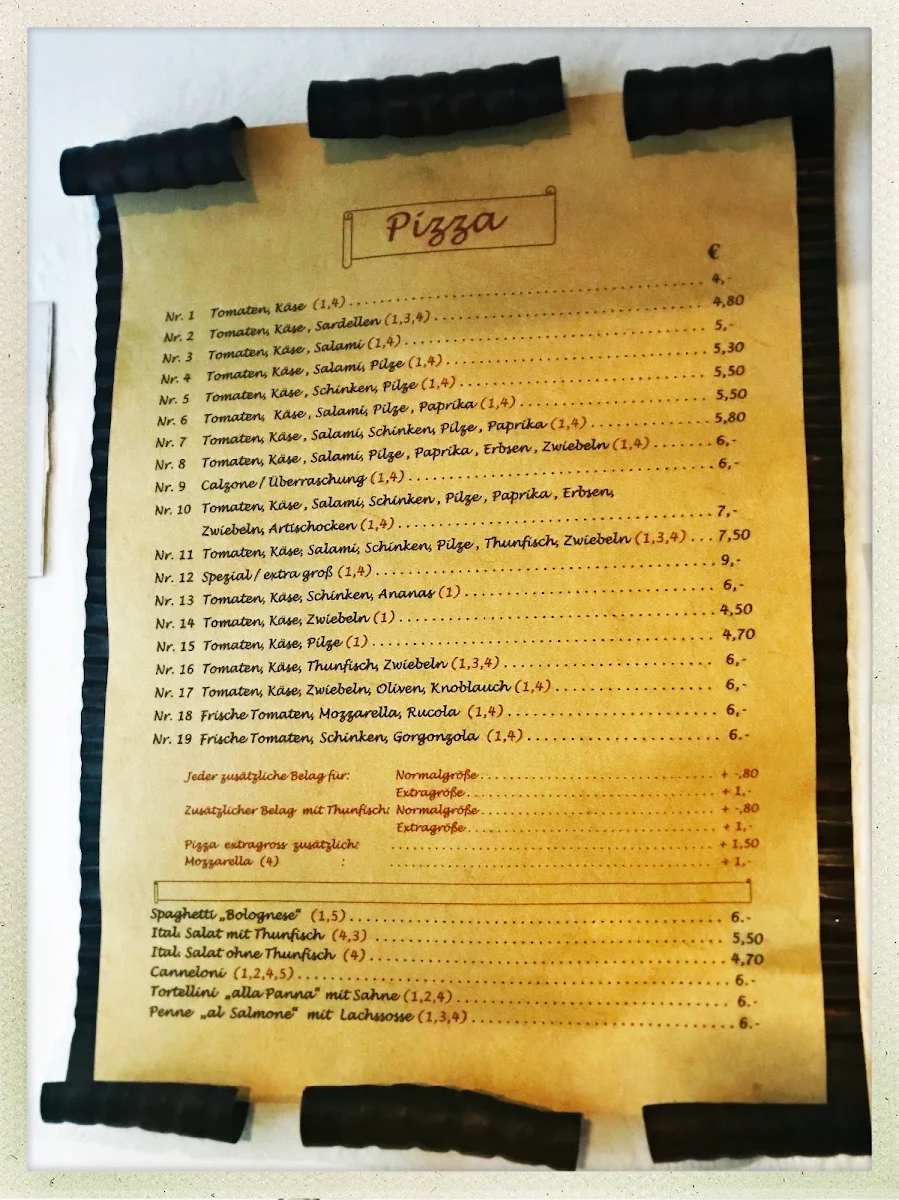 Pizza
€
Nr. 1 Tomaten, Käse (1,4) . . . . . . . . . . 4,-
Nr. 2 Tomaten, Käse , Sardellen (1,3,4) . . . . . . . . . . 4,80
Nr. 3 Tomaten, Käse , Salami (1,4) . . . . . . . . . . 5,-
Nr. 4 Tomaten, Käse , Salami, Pilze (1,4) . . . . . . . . . . 5,30
Nr. 5 Tomaten, Käse , Schinken, Pilze (1,4) . . . . . . . . . . 5,50
Nr. 6 Tomaten, Käse , Salami, Pilze , Paprika (1,4) . . . . . . . . . . 5,50
Nr. 7 Tomaten, Käse , Salami, Schinken, Pilze , Paprika (1,4) . . . . . . . . . . 5,80
Nr. 8 Tomaten, Käse , Salami, Pilze , Paprika , Erbsen , Zwiebeln (1,4) . . . . . . . 6,-
Nr. 9 Calzone / Überraschung (1,4) . . . . . . . . . . 6,-
Nr. 10 Tomaten, Käse , Salami, Schinken , Pilze , Paprika , Erbsen,
Zwiebeln, Artischocken (1,4) . . . . . . . . . . 7,-
Nr. 11 Tomaten, Käse, Salami, Schinken, Pilze , Thunfisch, Zwiebeln (1,3,4) . . . 7,50
Nr. 12 Spezial / extra groß (1,4) . . . . . . . . . . 9,-
Nr. 13 Tomaten, Käse, Schinken, Ananas (1) . . . . . . . . . . 6,-
Nr. 14 Tomaten, Käse, Zwiebeln (1) . . . . . . . . . . 4,50
Nr. 15 Tomaten, Käse, Pilze (1) . . . . . . . . . . 4,70
Nr. 16 Tomaten, Käse, Thunfisch, Zwiebeln (1,3,4) . . . . . . . . . . 6,-
Nr. 17 Tomaten, Käse, Zwiebeln, Oliven, Knoblauch (1,4) . . . . . . . . . . 6,-
Nr. 18 Frische Tomaten, Mozzarella, Rucola (1,4) . . . . . . . . . . 6,-
Nr. 19 Frische Tomaten, Schinken, Gorgonzola (1,4) . . . . . . . . . . 6.-
Jeder zusätzliche Belag für: Normalgröße . . . . . . . . . . + -,80
Extragröße . . . . . . . . . . + 1,-
Zusätzlicher Belag mit Thunfisch: Normalgröße . . . . . . . . . . + -,80
Extragröße . . . . . . . . . . + 1,-
Pizza extragross zusätzlich: . . . . . . . . . . + 1,50
Mozzarella (4) : . . . . . . . . . . + 1,-
Spaghetti „Bolognese" (1,5) . . . . . . . . . . 6.-
Ital. Salat mit Thunfisch (4,3) . . . . . . . . . . 5,50
Ital. Salat ohne Thunfisch (4) . . . . . . . . . . 4,70
Canneloni (1,2,4,5) . . . . . . . . . . 6.-
Tortellini „alla Panna" mit Sahne (1,2,4) . . . . . . . . . . 6.-
Penne „al Salmone" mit Lachssosse (1,3,4) . . . . . . . . . . 6.-